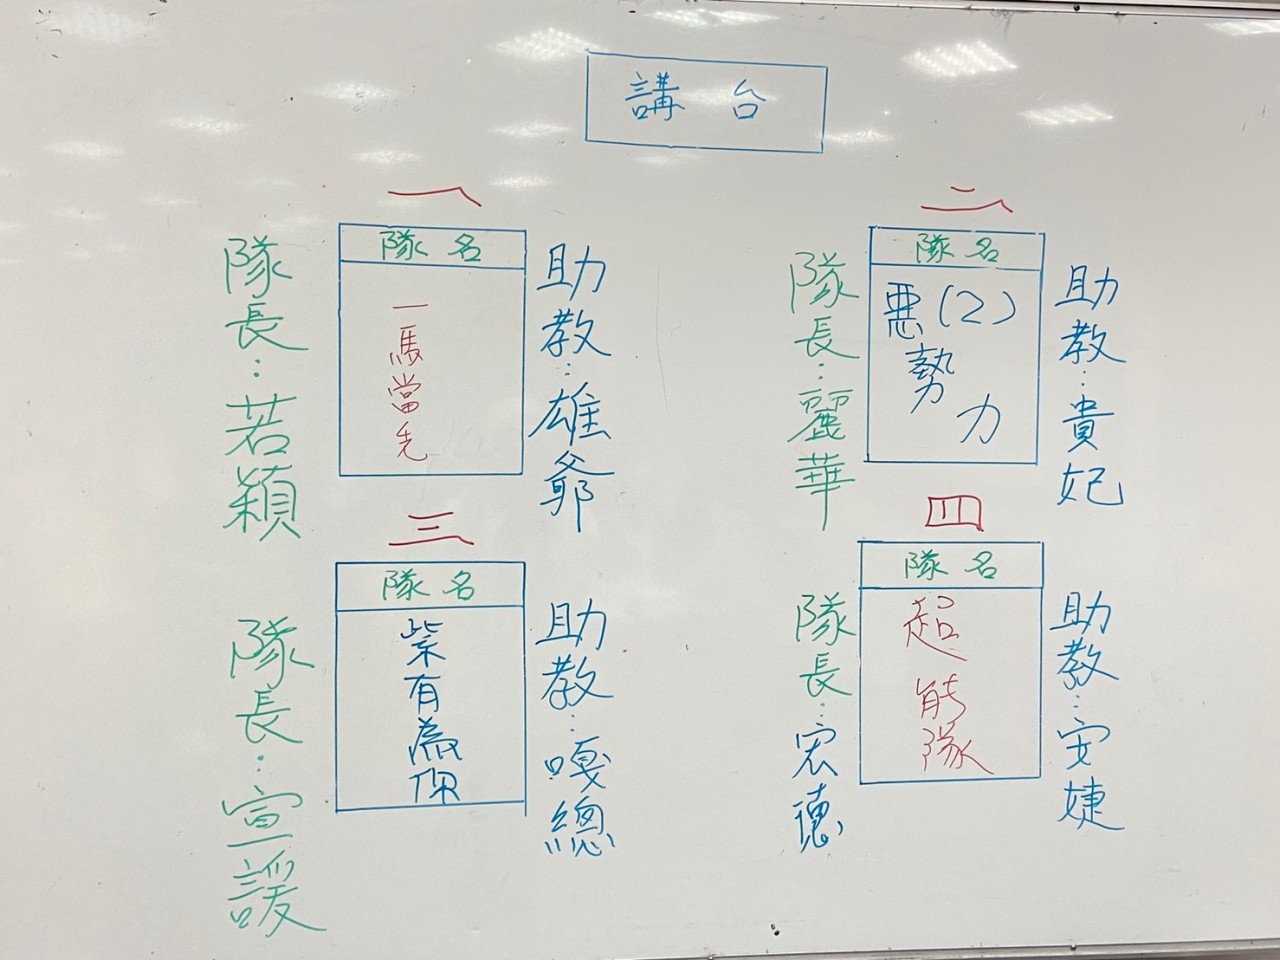 講台
一
隊名
一馬當先
隊長：若穎
助教：雄爺
二
隊名
惡(2)
勢
力
隊長：麗華
助教：貴妃
三
隊名
紫有為你
隊長：宣諼
助教：嘎總
四
隊名
超能隊
隊長：宏德
助教：安婕